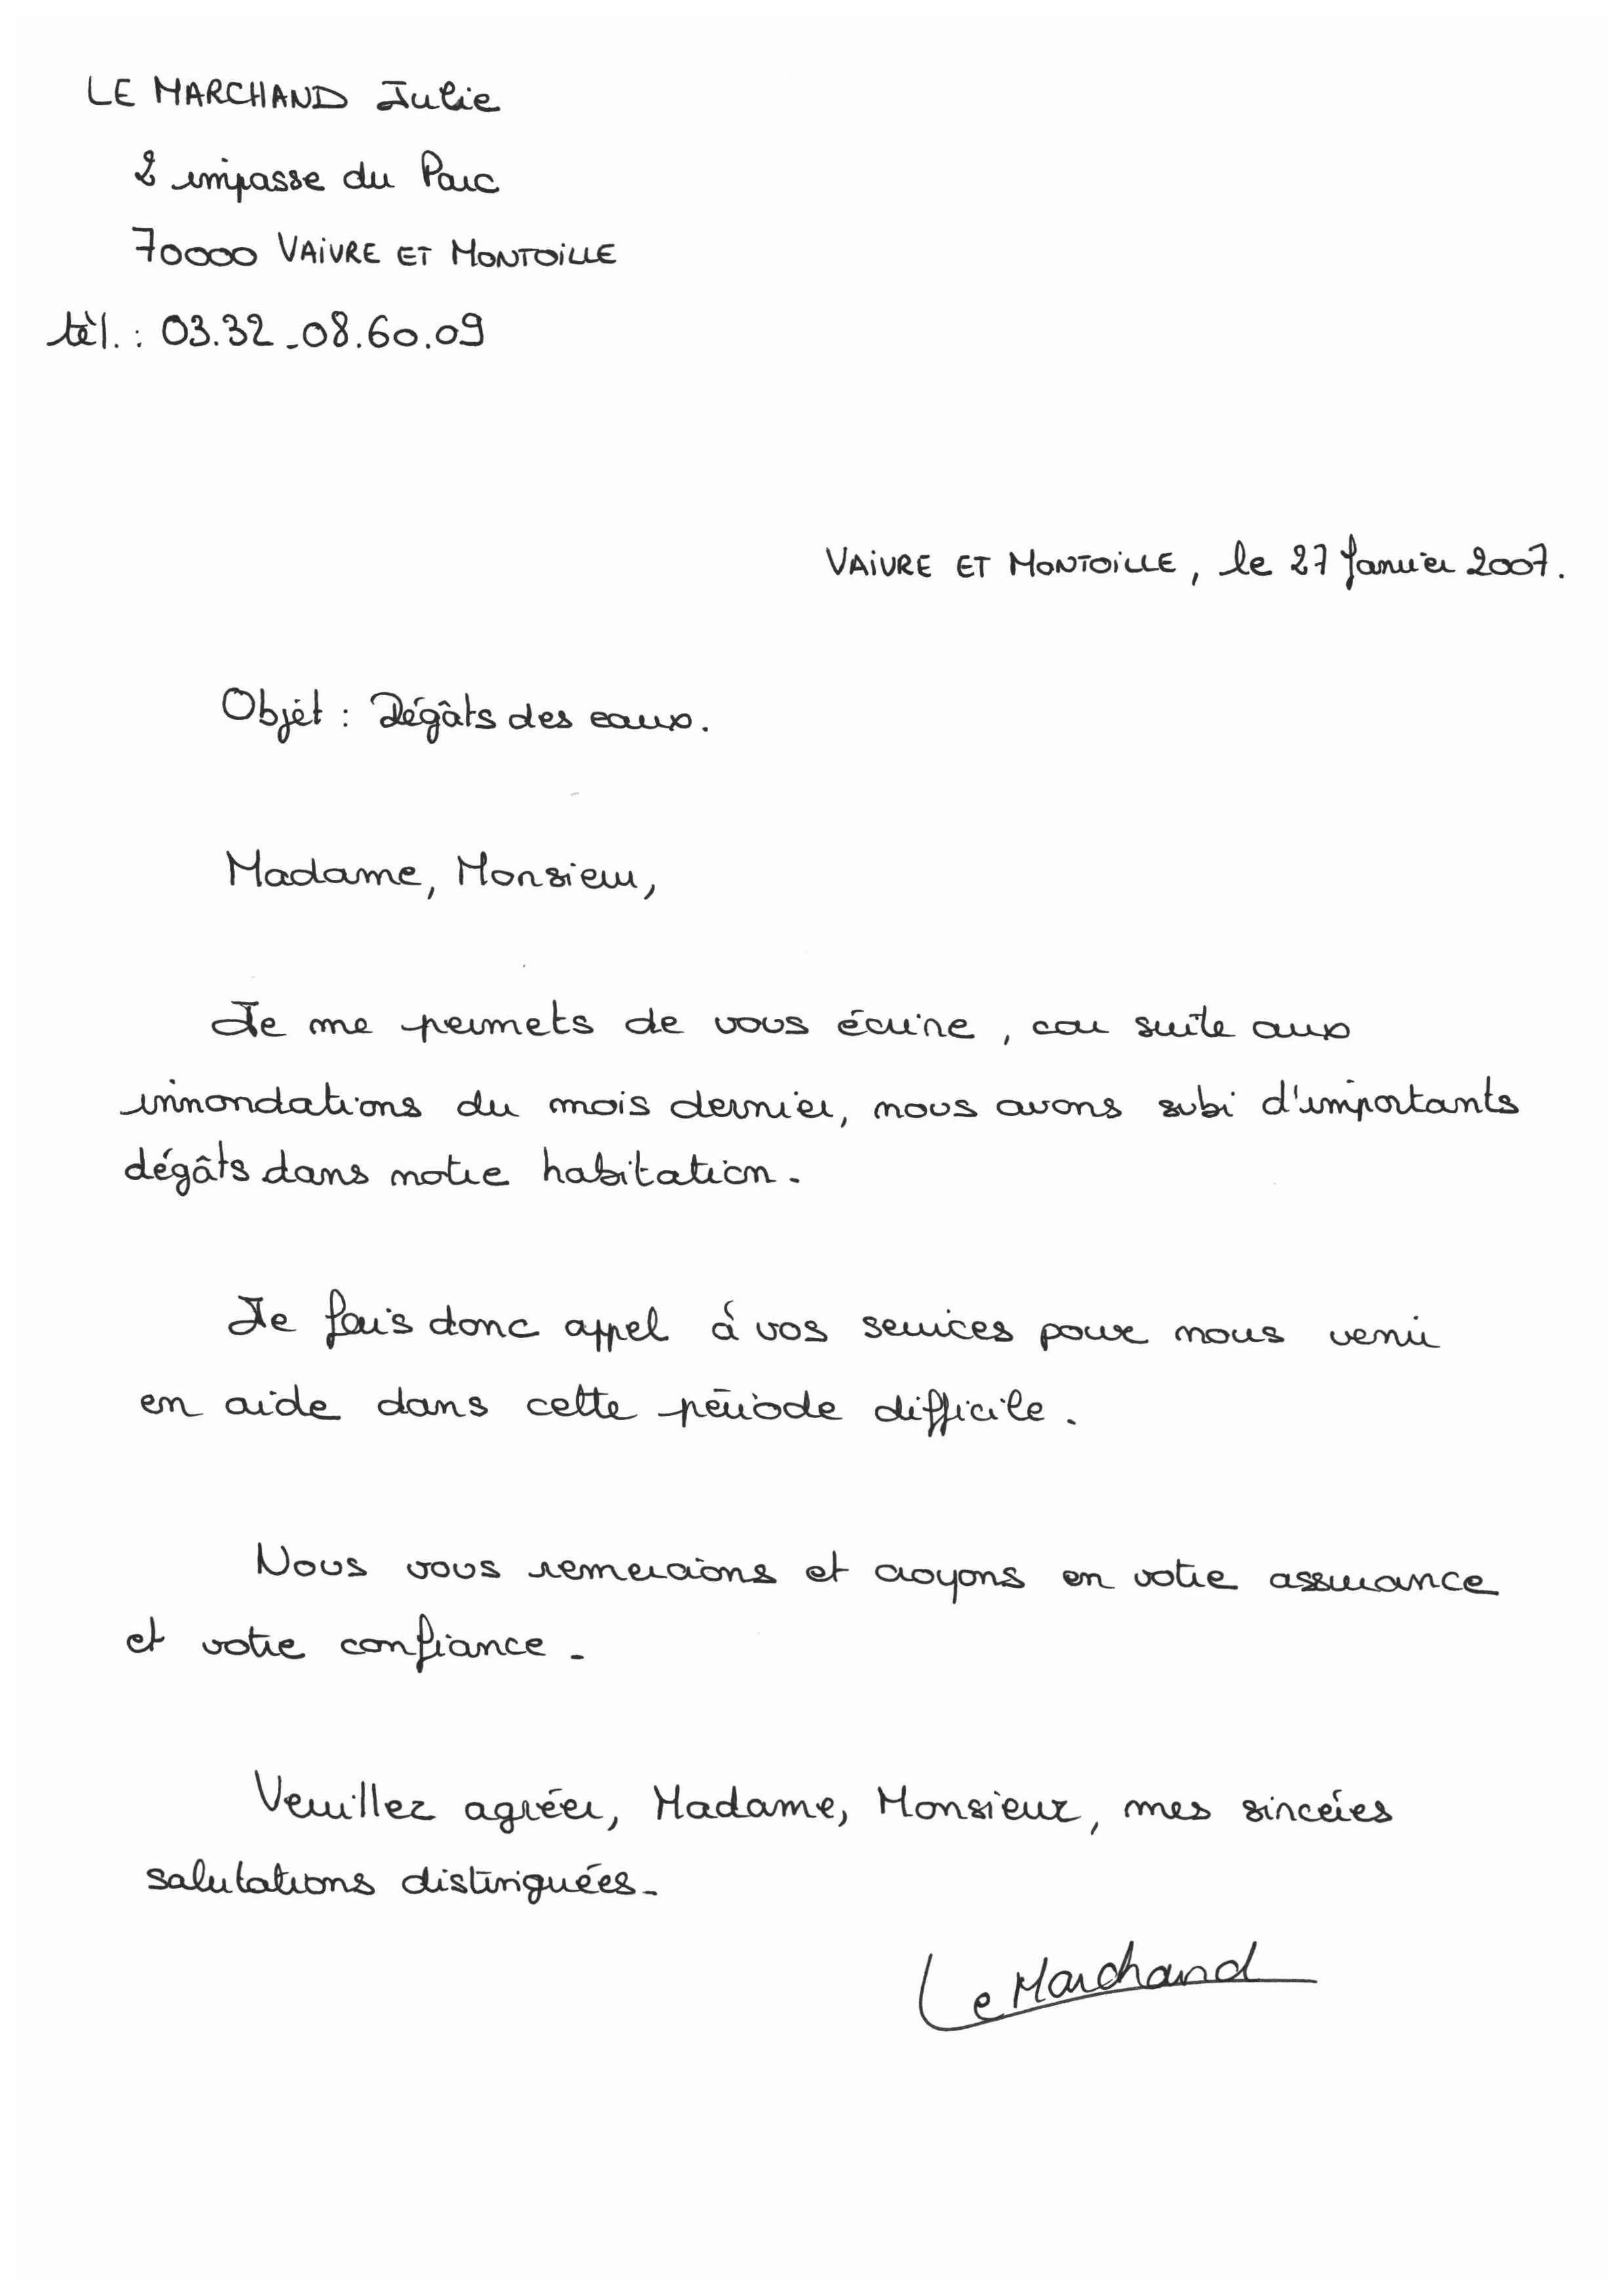 LE MARCHAND Julie
2 impasse du Parc
70000 VAIVRE ET MONTOILLE
tèl. : 03.32.08.60.09
VAIVRE ET MONTOILLE, le 27 Janvier 2007.
Objet : Dégâts des eaux.
Madame, Monsieur,
Je me permets de vous écrire, car suite aux
innondations du mois dernier, nous avons subi d'importants
dégâts dans notre habitation.
Je fais donc appel à vos services pour nous venir
en aide dans cette période difficile.
Nous vous remercions et croyons en votre assurance
et votre confiance.
Veuillez agréer, Madame, Monsieur, mes sincères
salutations distinguées.
Le Marchand